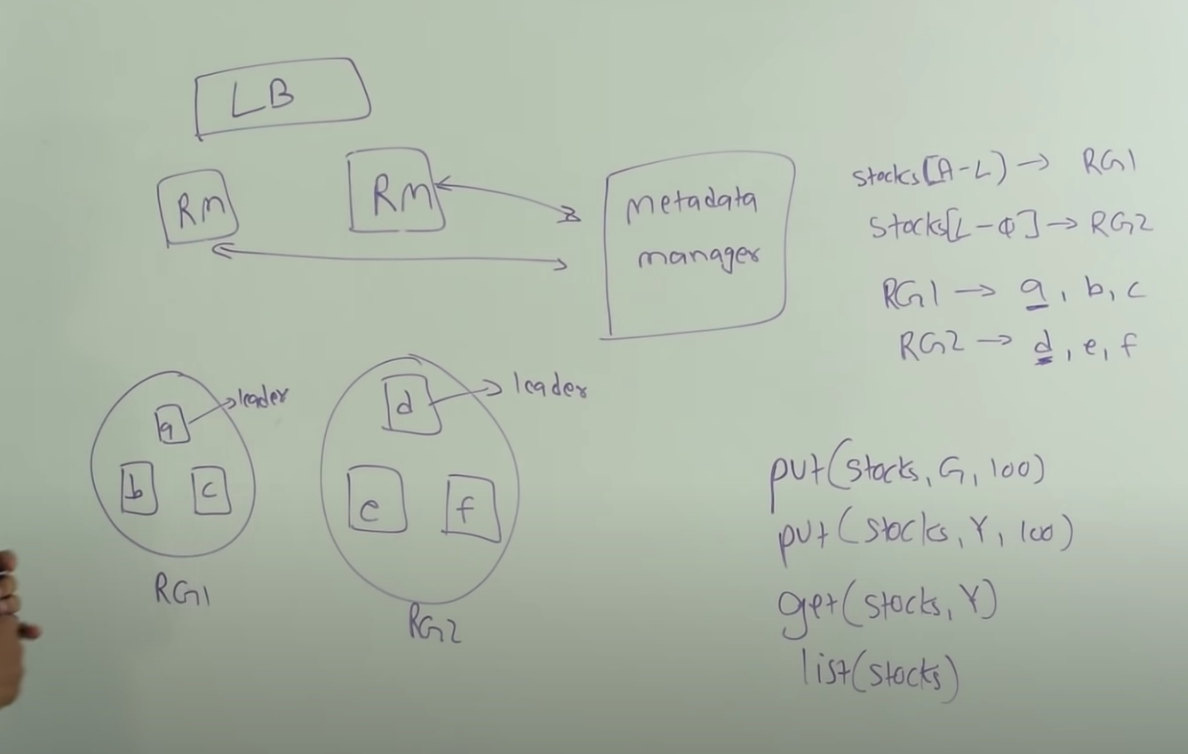 LB
RM
RM
metadata
manager
stocks[A-L) → RG1
stocks[L-Φ] → RG2
RG1 → a, b, c
RG2 → d, e, f
a
→ leader
b
c
RG1
d
→ leader
e
f
RG2
put(stocks, G, 100)
put(stocks, Y, 100)
get(stocks, Y)
list(stocks)